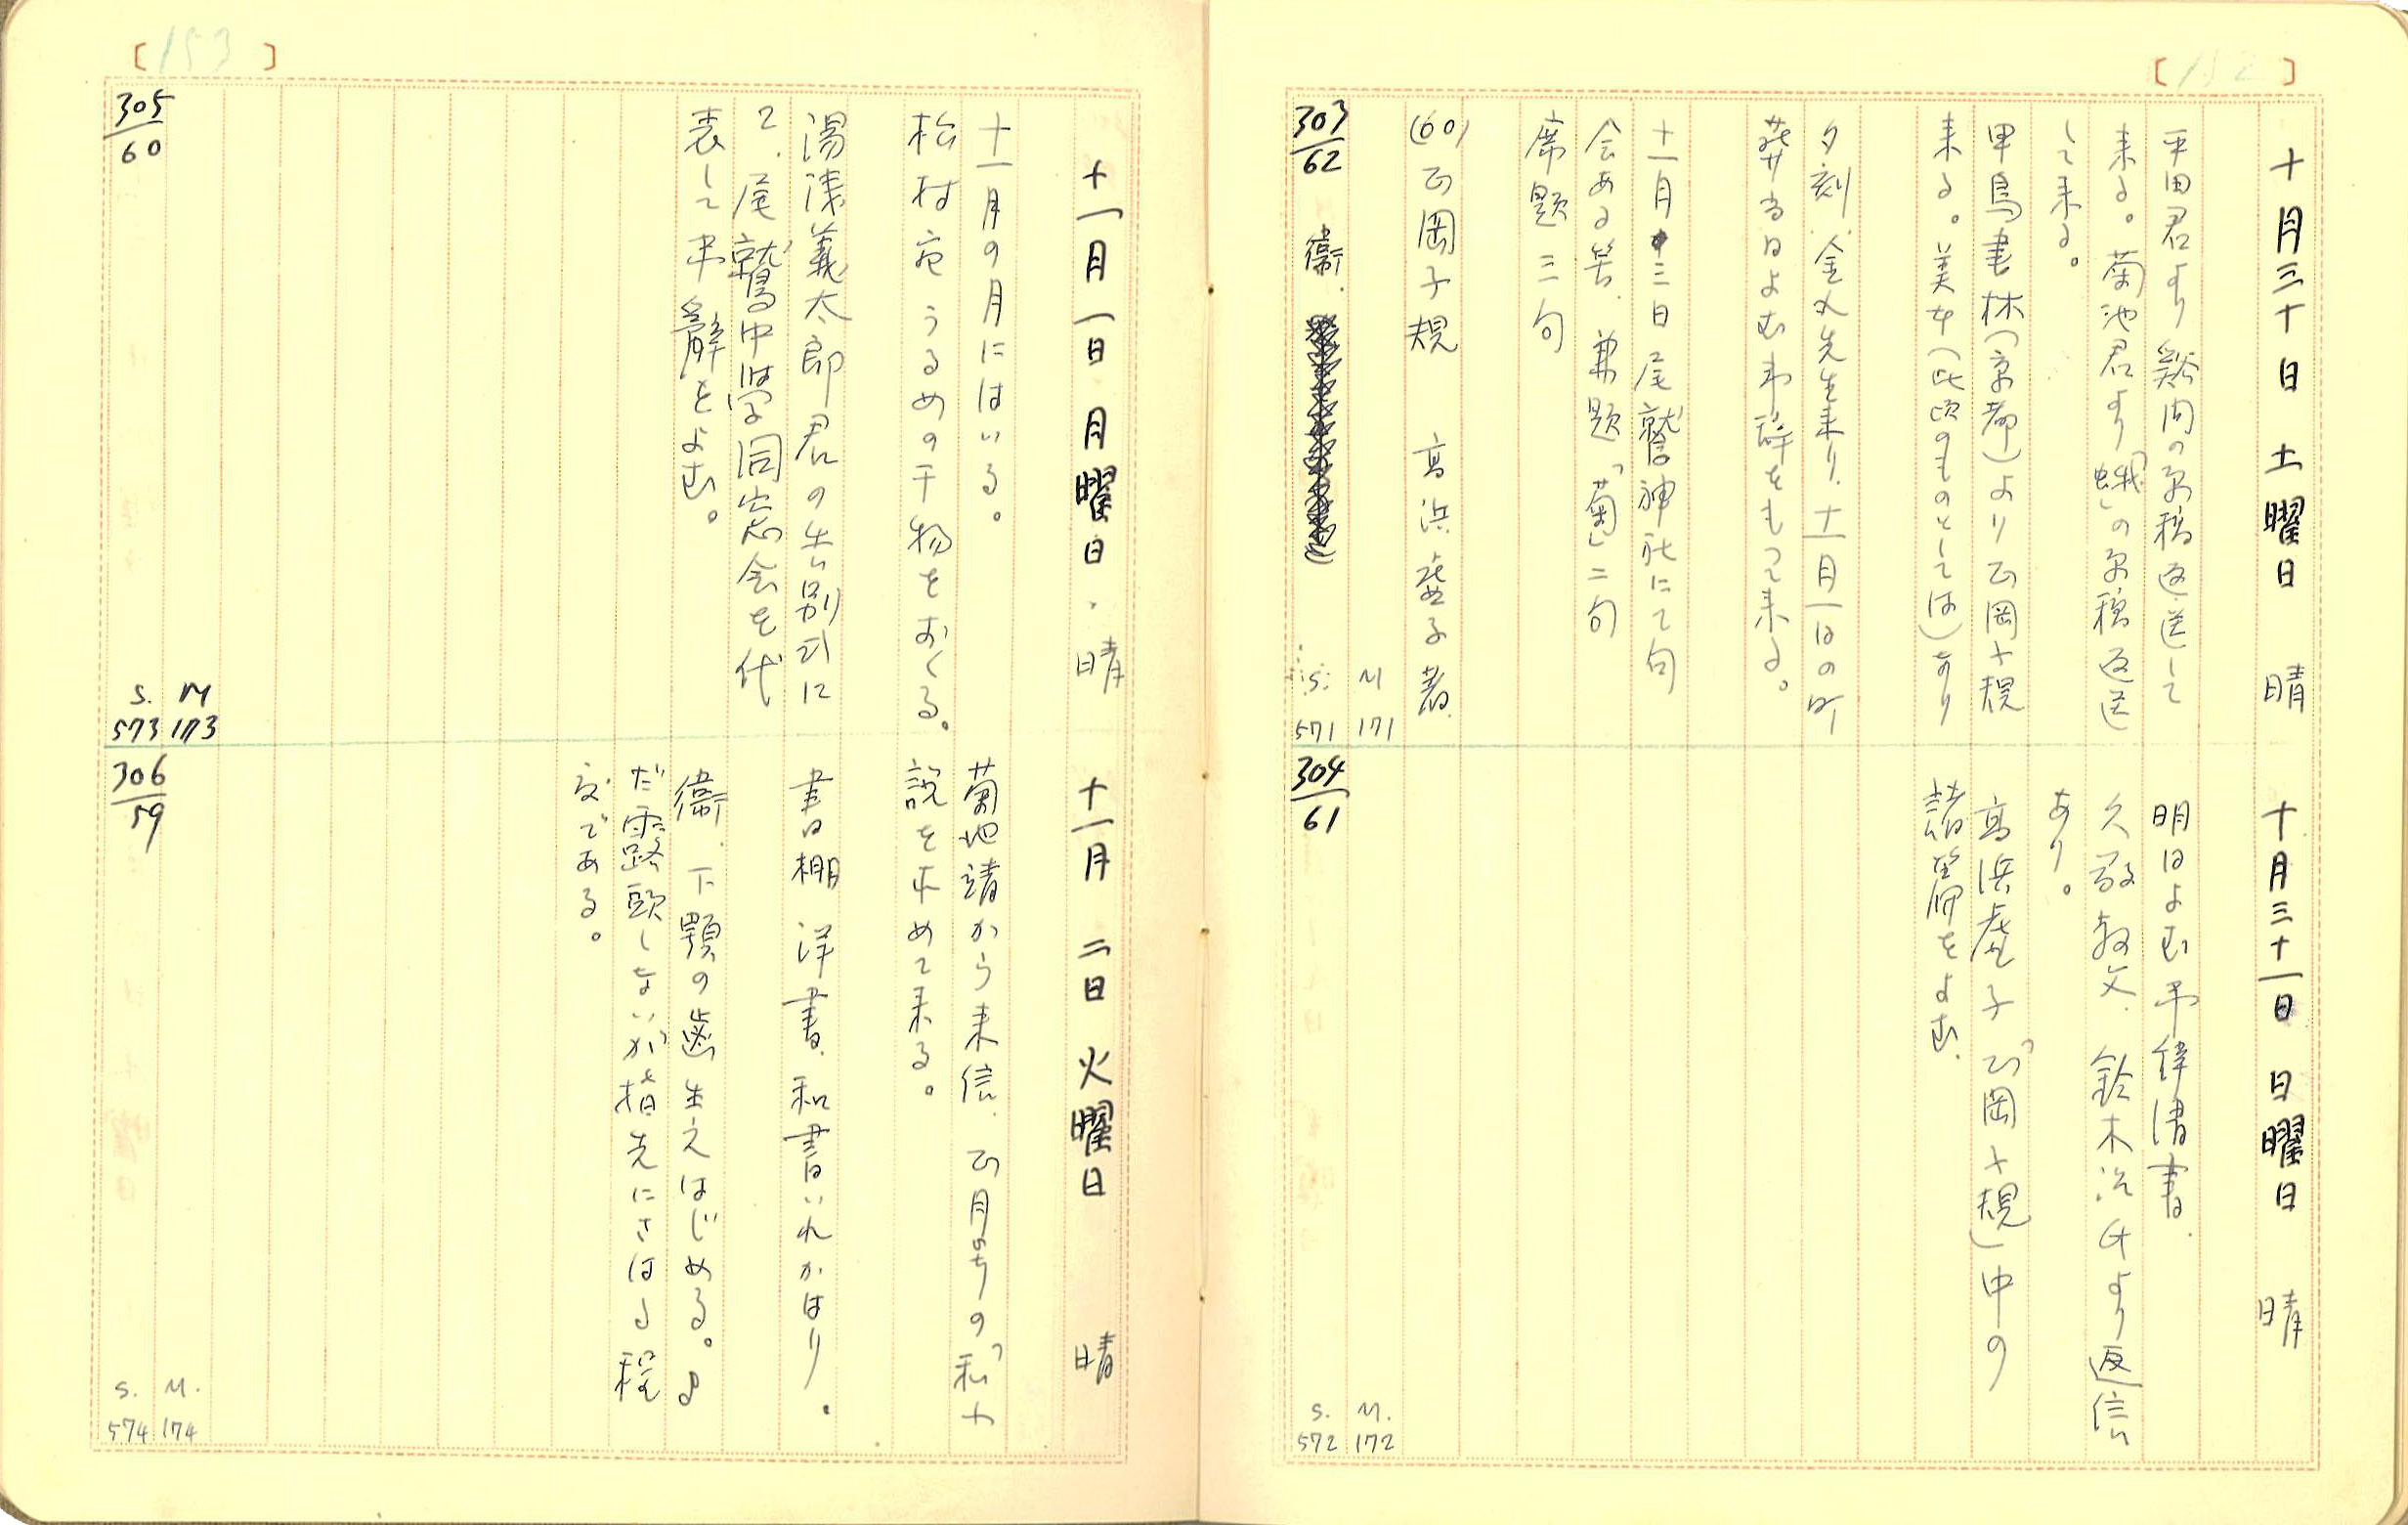 [152]
十月三十日 土曜日 晴
平田君より谿間の原稿返送して
来る。菊池君より「蛾」の原稿返送
して来る。
甲鳥書林(京都)より正岡子規
来る。美本(此頃のものとしては)なり
夕刻、金丸先生来り、十一月一日の町
葬当日よむ弔辞をもつて来る。
十一月三日尾鷲神社にて句
会ある筈、兼題「菊」二句
席題三句
(60) 正岡子規 高浜虚子著
303/62 衞.
S. 571 M 171
十月三十一日 日曜日 晴
明日よむ弔辞清書.
久敬教文、鈴木治氏より返信
あり。
高浜虚子「正岡子規」中の
諸篇をよむ.
304/61
S. 572 M. 172
[153]
十一月一日 月曜日. 晴
十一月の月にはいる。
松村宛うるめの干物をおくる。
湯浅義太郎君の告別式に
て、尾鷲中学同窓会を代
表して弔辭をよむ。
305/60
S. 573 M 173
十一月二日 火曜日 晴
菊池靖から来信、正月号の「私小
説を求めて来る。
書棚 洋書、和書いれかはり.
衞、下顎の齒生えはじめる。ま
だ露頭しないが指先にさはる程
度である。
306/59
S. 574 M. 174